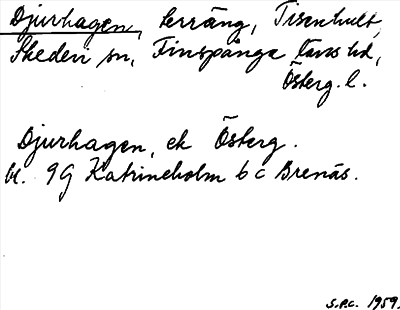 Djurhagen, terräng, Tisenhult,
Skedevi sn, Finspånga läns hd,
Österg. l.
Djurhagen, ek Österg.
bl. 9G Katrineholm b c Brenäs.
S.P.C. 1959.